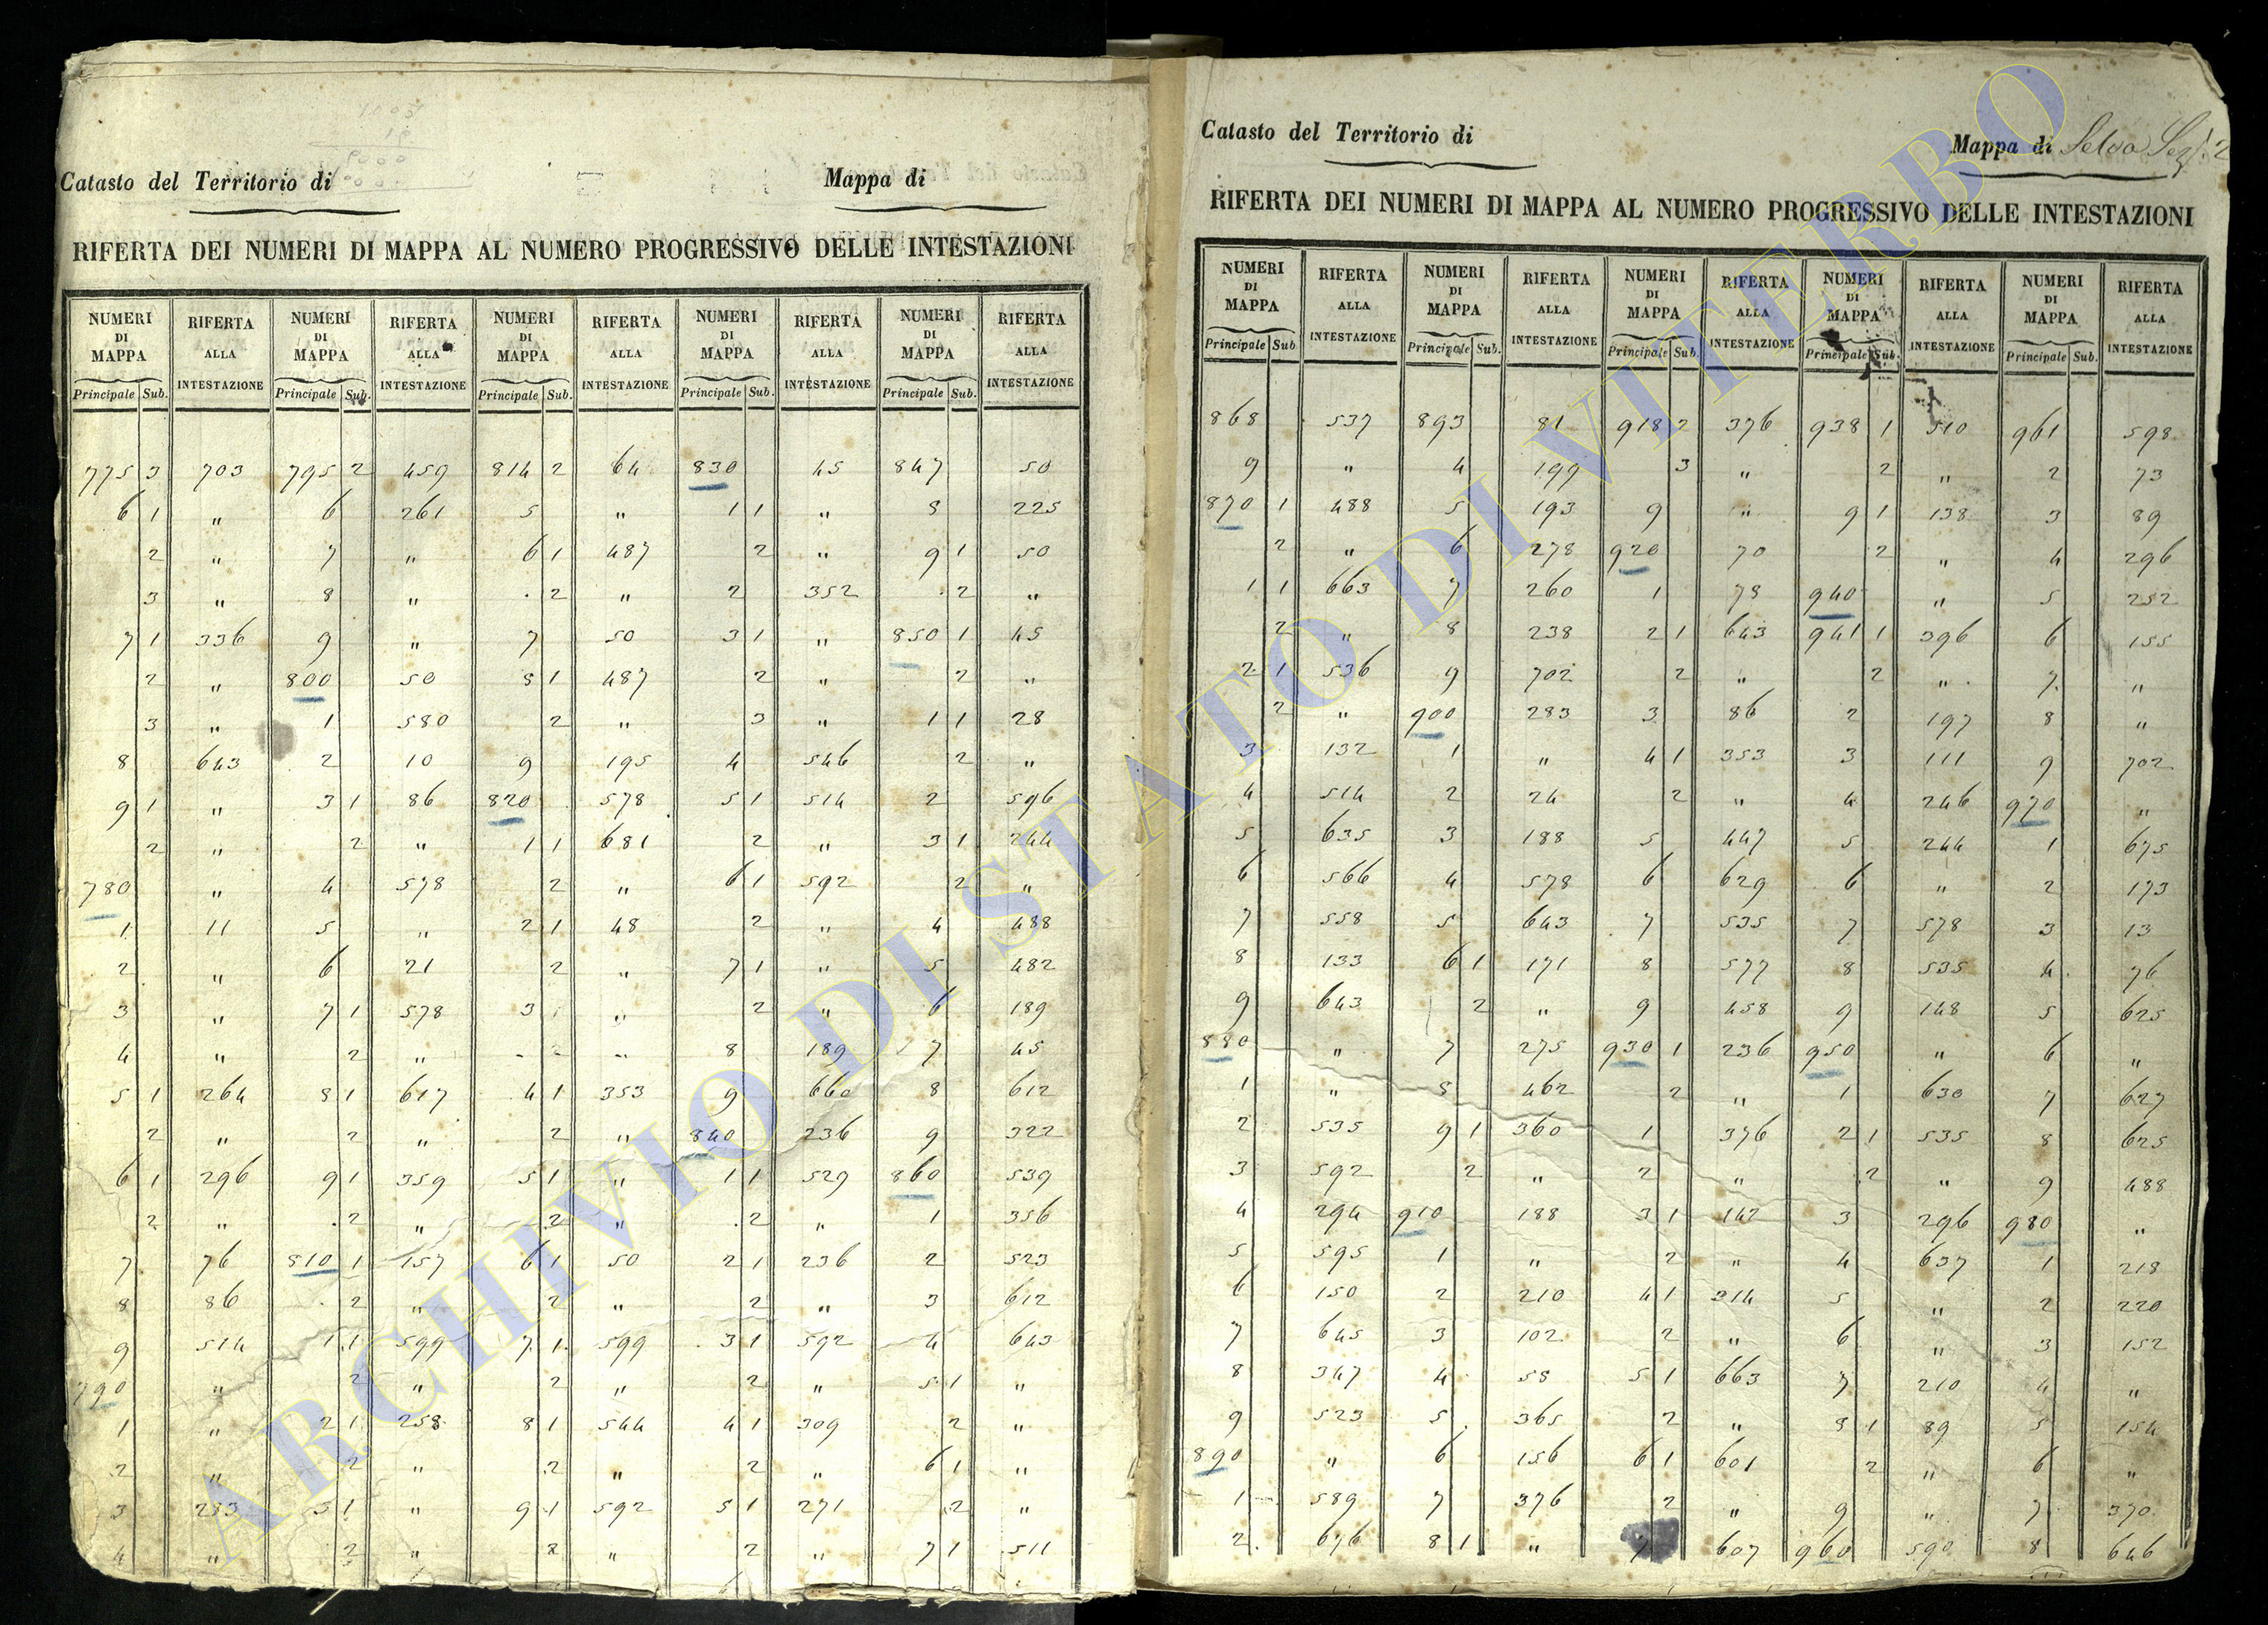 Catasto del Territorio di
Mappa di
RIFERTA DEI NUMERI DI MAPPA AL NUMERO PROGRESSIVO DELLE INTESTAZIONI
NUMERI DI MAPPA RIFERTA ALLA INTESTAZIONE NUMERI DI MAPPA RIFERTA ALLA INTESTAZIONE NUMERI DI MAPPA RIFERTA ALLA INTESTAZIONE NUMERI DI MAPPA RIFERTA ALLA INTESTAZIONE NUMERI DI MAPPA RIFERTA ALLA INTESTAZIONE
Principale Sub. Principale Sub. Principale Sub. Principale Sub. Principale Sub.
775 3 703 795 2 459 814 2 64 830 45 847 50
6 1 " 6 261 5 " 1 1 " 8 225
2 " 7 " 6 1 487 2 " 9 1 50
3 " 8 " 2 " 2 352 2 "
7 1 336 9 " 7 50 3 1 " 850 1 45
2 " 800 50 8 1 487 2 " 2 "
3 " 1 580 2 " 3 " 1 1 28
8 643 2 10 9 195 4 546 2 "
9 1 " 3 1 86 820 578 5 1 514 2 596
2 " 2 " 1 1 681 2 " 3 1 244
780 " 4 578 2 " 6 1 592 2 "
1 11 5 " 2 1 48 2 " 4 488
2 " 6 21 2 " 7 1 " 5 482
3 " 7 1 578 3 " 2 " 6 189
4 " 2 " - - " 8 189 7 45
5 1 264 8 1 617 4 1 353 9 660 8 612
2 " 2 " 2 " 840 236 9 322
6 1 296 9 1 359 5 1 " 1 1 529 860 539
2 " 2 " 2 " 2 " 1 356
7 76 810 1 157 6 1 50 2 1 236 2 523
8 86 2 " 2 " 2 " 3 612
9 514 1 1 599 7 1 599 3 1 592 4 643
790 " 2 " 2 " 2 " 5 1 "
1 " 2 1 258 8 1 544 4 1 309 2 "
2 " 2 " 2 " 2 " 6 1 "
3 233 3 1 " 9 1 592 5 1 271 2 "
4 " 2 " 2 " 2 " 7 1 511
Catasto del Territorio di
Mappa di Selva Sez. 2
RIFERTA DEI NUMERI DI MAPPA AL NUMERO PROGRESSIVO DELLE INTESTAZIONI
NUMERI DI MAPPA RIFERTA ALLA INTESTAZIONE NUMERI DI MAPPA RIFERTA ALLA INTESTAZIONE NUMERI DI MAPPA RIFERTA ALLA INTESTAZIONE NUMERI DI MAPPA RIFERTA ALLA INTESTAZIONE NUMERI DI MAPPA RIFERTA ALLA INTESTAZIONE
Principale Sub. Principale Sub. Principale Sub. Principale Sub. Principale Sub.
868 537 893 81 918 2 376 938 1 510 961 598
9 " 4 199 3 " 2 " 2 73
870 1 488 5 193 9 " 9 1 138 3 89
2 " 6 278 920 70 2 " 4 296
1 1 663 7 260 1 78 940 " 5 252
2 " 8 238 2 1 643 941 1 396 6 155
2 1 536 9 702 2 " 2 " 7 "
2 " 900 283 3 86 2 197 8 "
3 132 1 " 4 1 353 3 111 9 702
4 514 2 24 2 " 4 246 970 "
5 635 3 188 5 447 5 244 1 675
6 566 4 578 6 629 6 " 2 173
7 558 5 643 7 535 7 578 3 13
8 133 6 1 171 8 577 8 535 4 76
9 643 2 " 9 458 9 148 5 625
880 " 7 275 930 1 236 950 " 6 "
1 " 8 462 2 " 1 630 7 627
2 535 9 1 360 1 376 2 1 535 8 625
3 592 2 " 2 " 2 " 9 488
4 294 910 188 3 1 142 3 296 980 "
5 595 1 " 2 " 4 637 1 218
6 150 2 210 4 1 314 5 " 2 220
7 645 3 102 2 " 6 " 3 152
8 347 4 58 5 1 663 7 210 4 "
9 523 5 365 2 " 8 1 89 5 154
890 " 6 156 6 1 601 2 " 6 "
1 589 7 376 2 " 9 " 7 370
2 676 8 1 " 7 607 960 590 8 646
ARCHIVIO DI STATO DI VITERBO